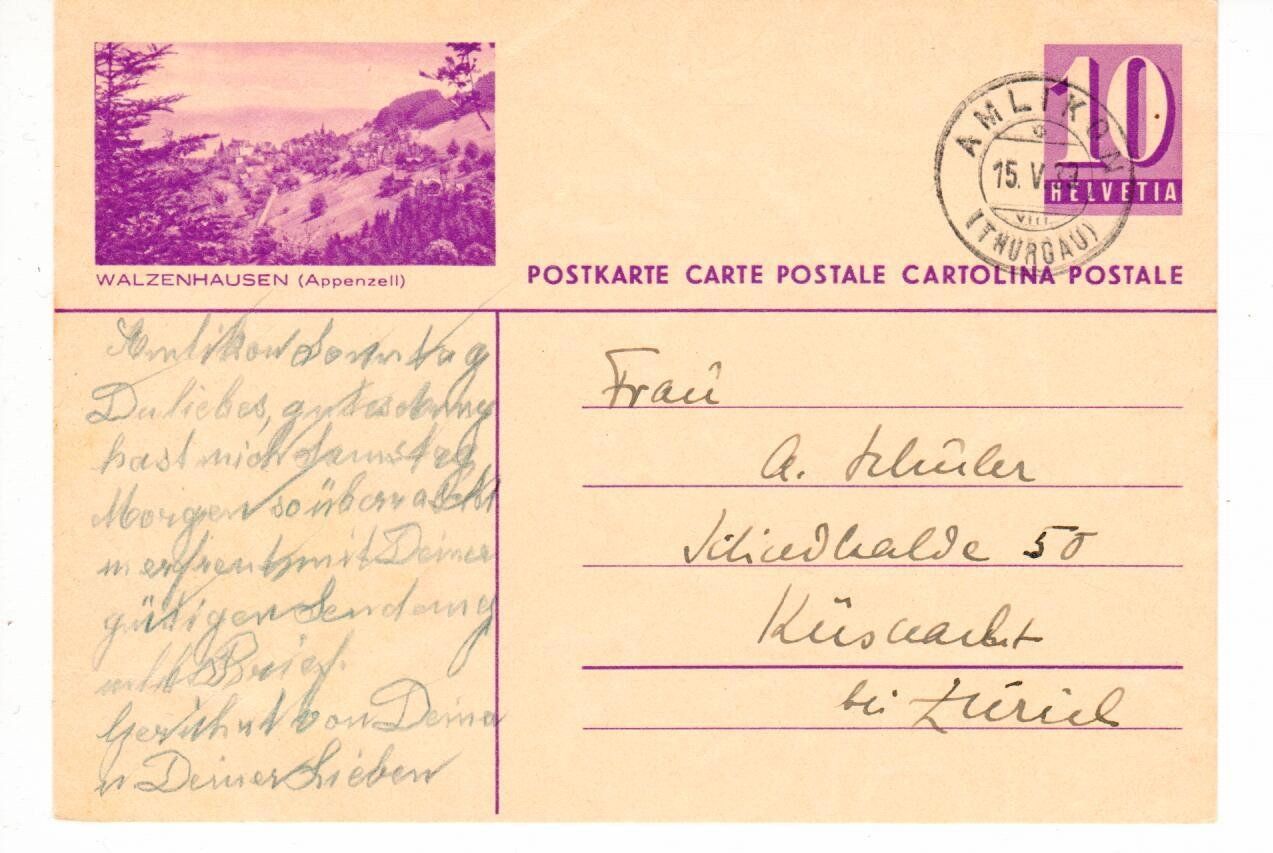 WALZENHAUSEN (Appenzell)
10
HELVETIA
AMLIKON
15. V.
VIII
(THURGAU)
POSTKARTE CARTE POSTALE CARTOLINA POSTALE
Amlikon Sonntag
Du liebes, gutes
hast mich Samstag
Morgen so überrascht
u erfreut mit Deiner
gütigen Sendung
Brief.
Gerührt von Deiner
u Deiner Lieben
Frau
A. Schüler
Schiedhalde 50
Küsnacht
bei Zürich